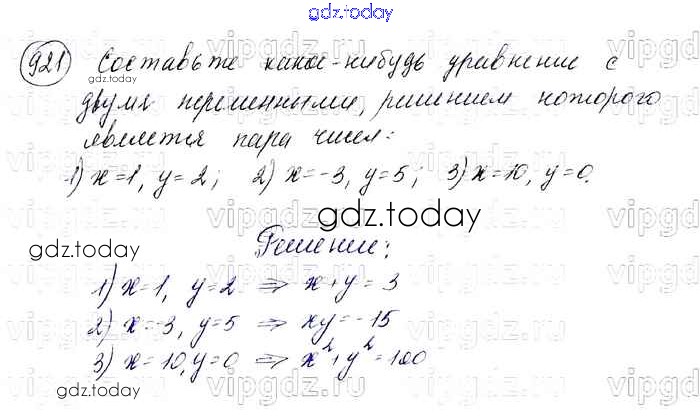 gdz.today
921 Составьте какое-нибудь уравнение с
gdz.today
двумя переменными, решением которого
является пара чисел:
1) x=1, y=2; 2) x=-3, y=5; 3) x=10, y=0.
gdz.today
gdz.today
Решение:
1) x=1, y=2 ⇒ x+y=3
2) x=-3, y=5 ⇒ xy=-15
3) x=10, y=0 ⇒ x²+y²=100
gdz.today
vipgdz.ru